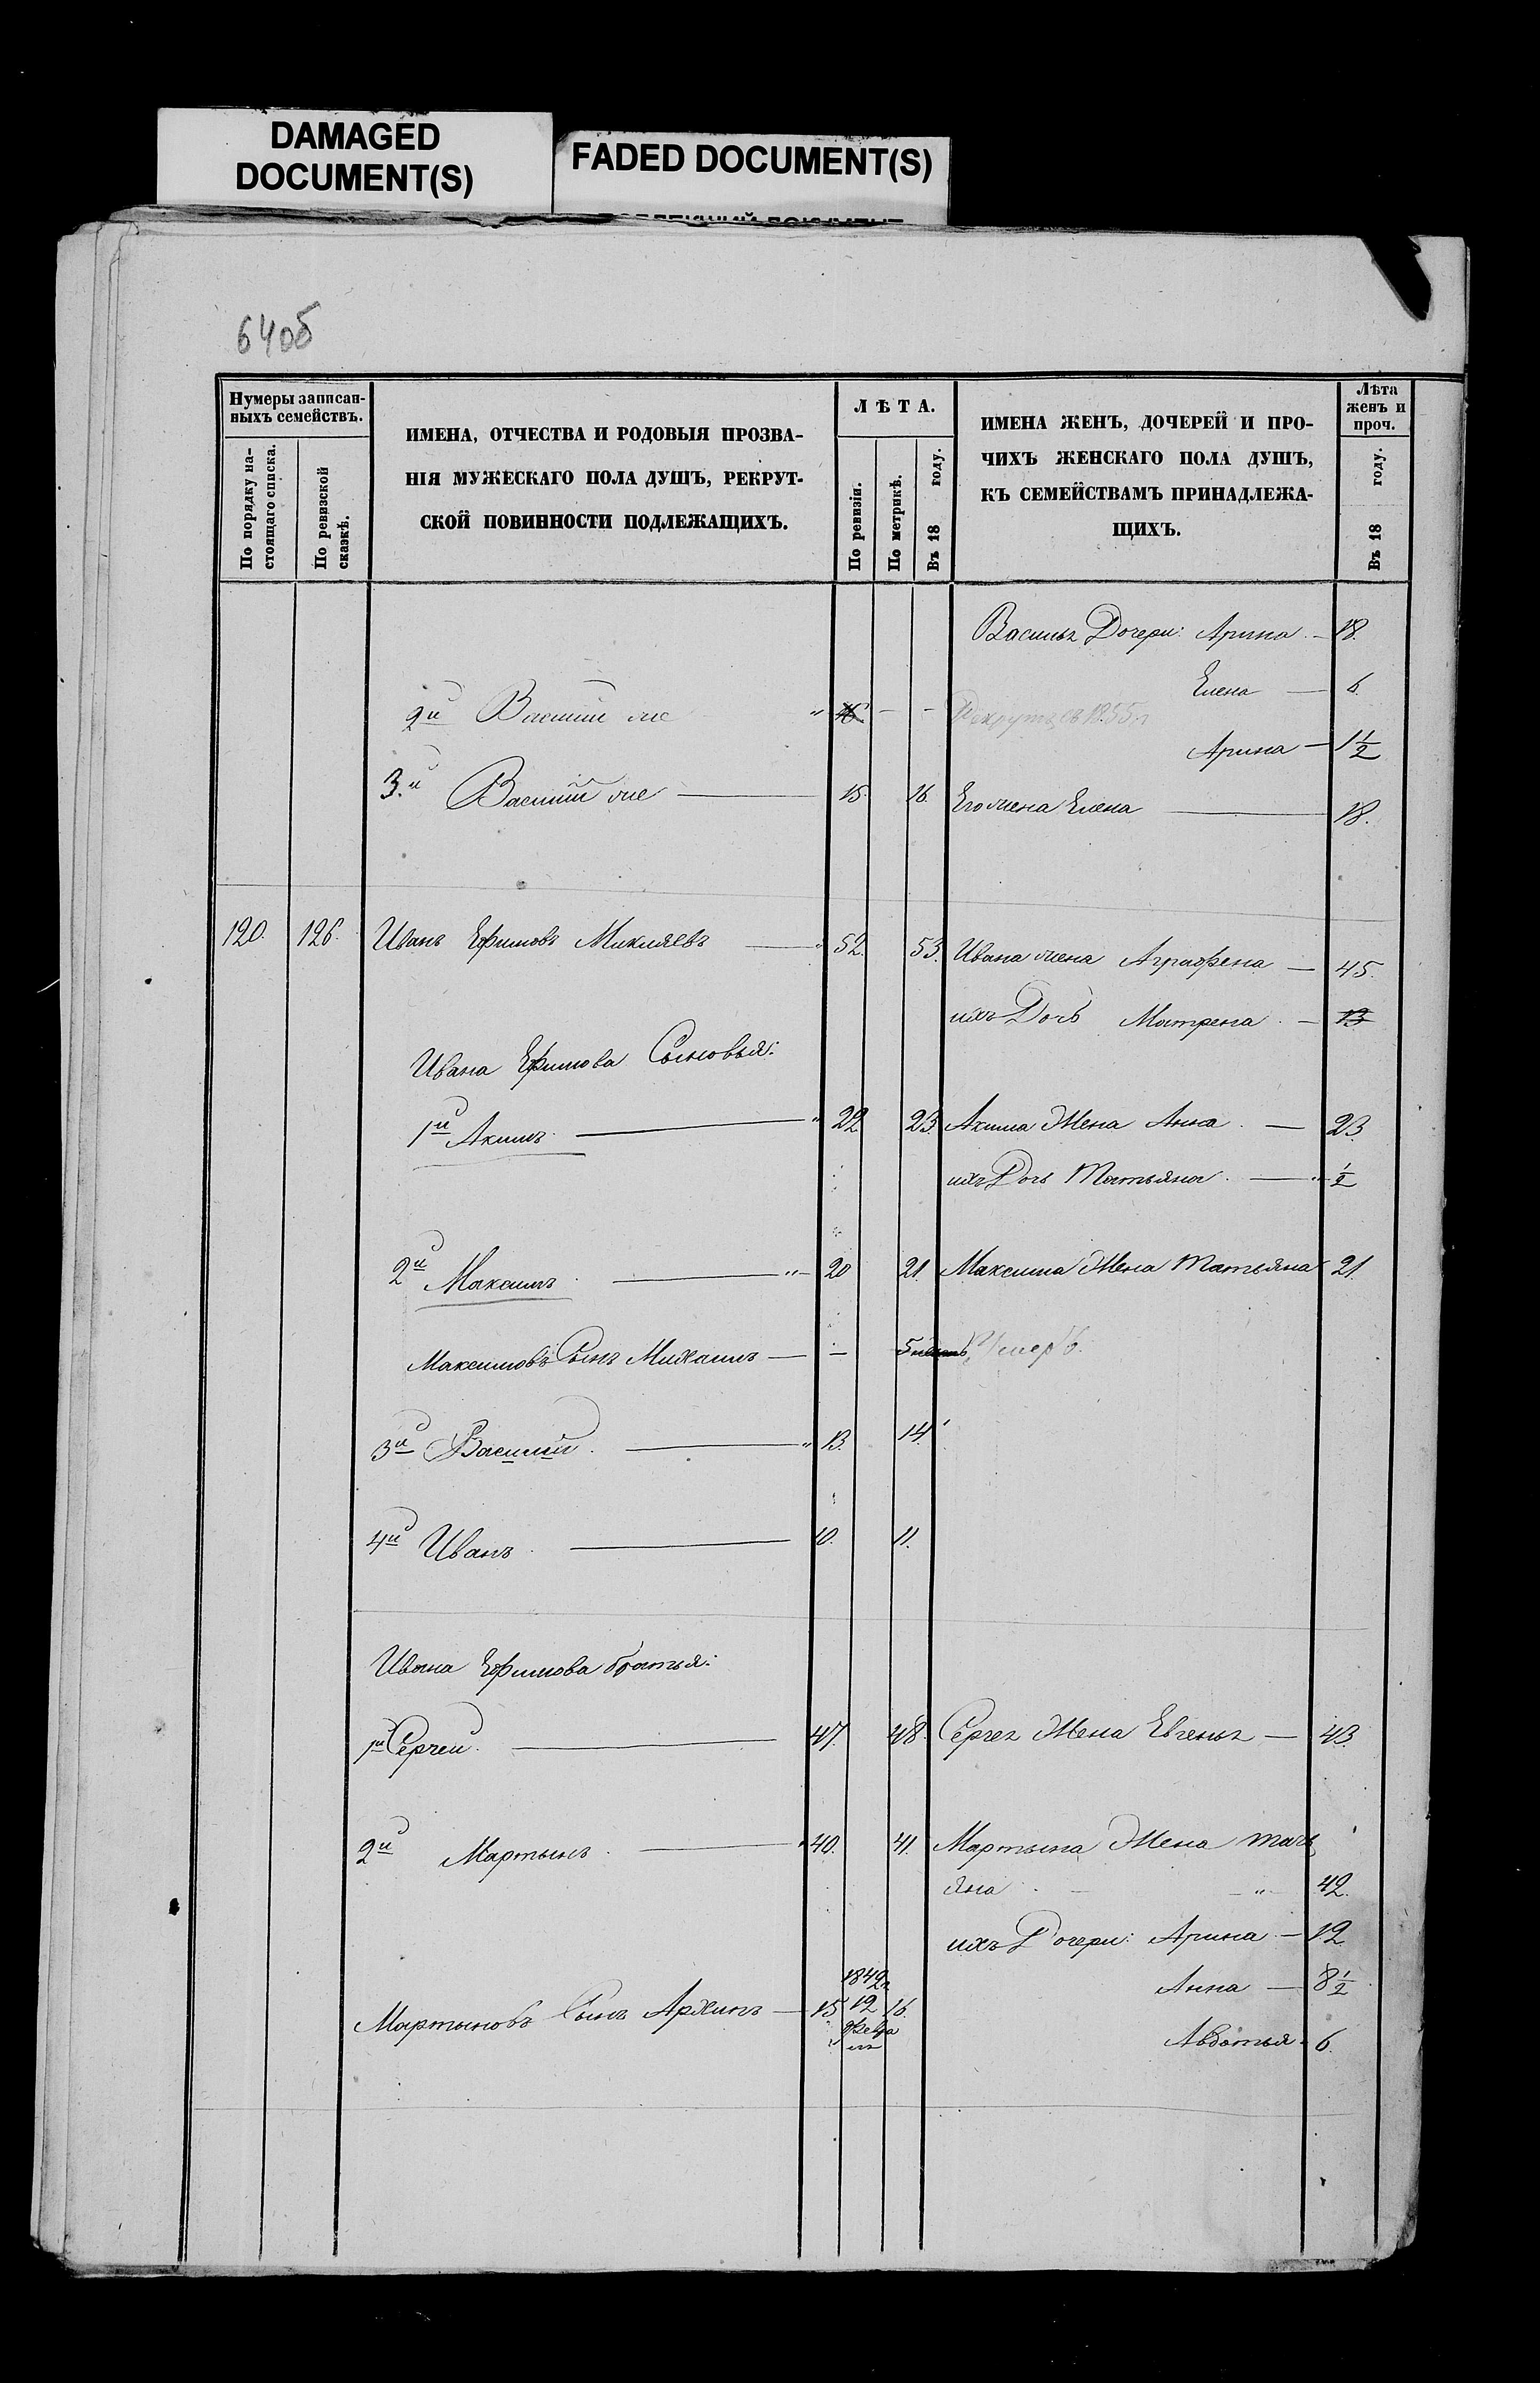 DAMAGED
DOCUMENT(S)
FADED DOCUMENT(S)
640б
Нумеры записан-
ныхъ семействъ.
По порядку на-
стоящаго списка.
По ревизской
сказкѣ.
ИМЕНА, ОТЧЕСТВА И РОДОВЫЯ ПРОЗВА-
НІЯ МУЖЕСКАГО ПОЛА ДУШЪ, РЕКРУТ-
СКОЙ ПОВИННОСТИ ПОДЛЕЖАЩИХЪ.
ЛѢТА.
По ревизіи.
По метрикѣ.
Въ 18 году.
ИМЕНА ЖЕНЪ, ДОЧЕРЕЙ И ПРО-
ЧИХЪ ЖЕНСКАГО ПОЛА ДУШЪ,
КЪ СЕМЕЙСТВАМЪ ПРИНАДЛЕЖА-
ЩИХЪ.
Лѣта
женъ и
проч.
Въ 18 году.
Василья Дочери: Арина 18.
Елена 6.
2й Василий же
Рекрутъ съ 1855 г
Арина 1½
3.й Василий же 15. 16. Его жена Елена 18.
120. 126. Иванъ Ефимовъ Микляевъ 52. 53. Ивана жена Аграфена 45.
ихъ Дочь Матрена 13
Ивана Ефимова Сыновья:
1й Акимъ 22 23. Акима Жена Анна 23.
ихъ Дочь Татьяна ½
2й Максимъ 20 21. Максима Жена Татьяна 21.
Максимовъ Сынъ Михаилъ — Умеръ.
3й Василий 13. 14.
4й Иванъ 10. 11.
Ивана Ефимова братья:
1й Сергей 47. 48. Сергея Жена Евгенья 43.
2й Мартынъ 40. 41. Мартына Жена Тать
яна 42.
ихъ Дочери: Арина 12
1842 г
Анна 8½
Мартыновъ Сынъ Архипъ 15 12 16.
Февра
ля
Авдотья 6.